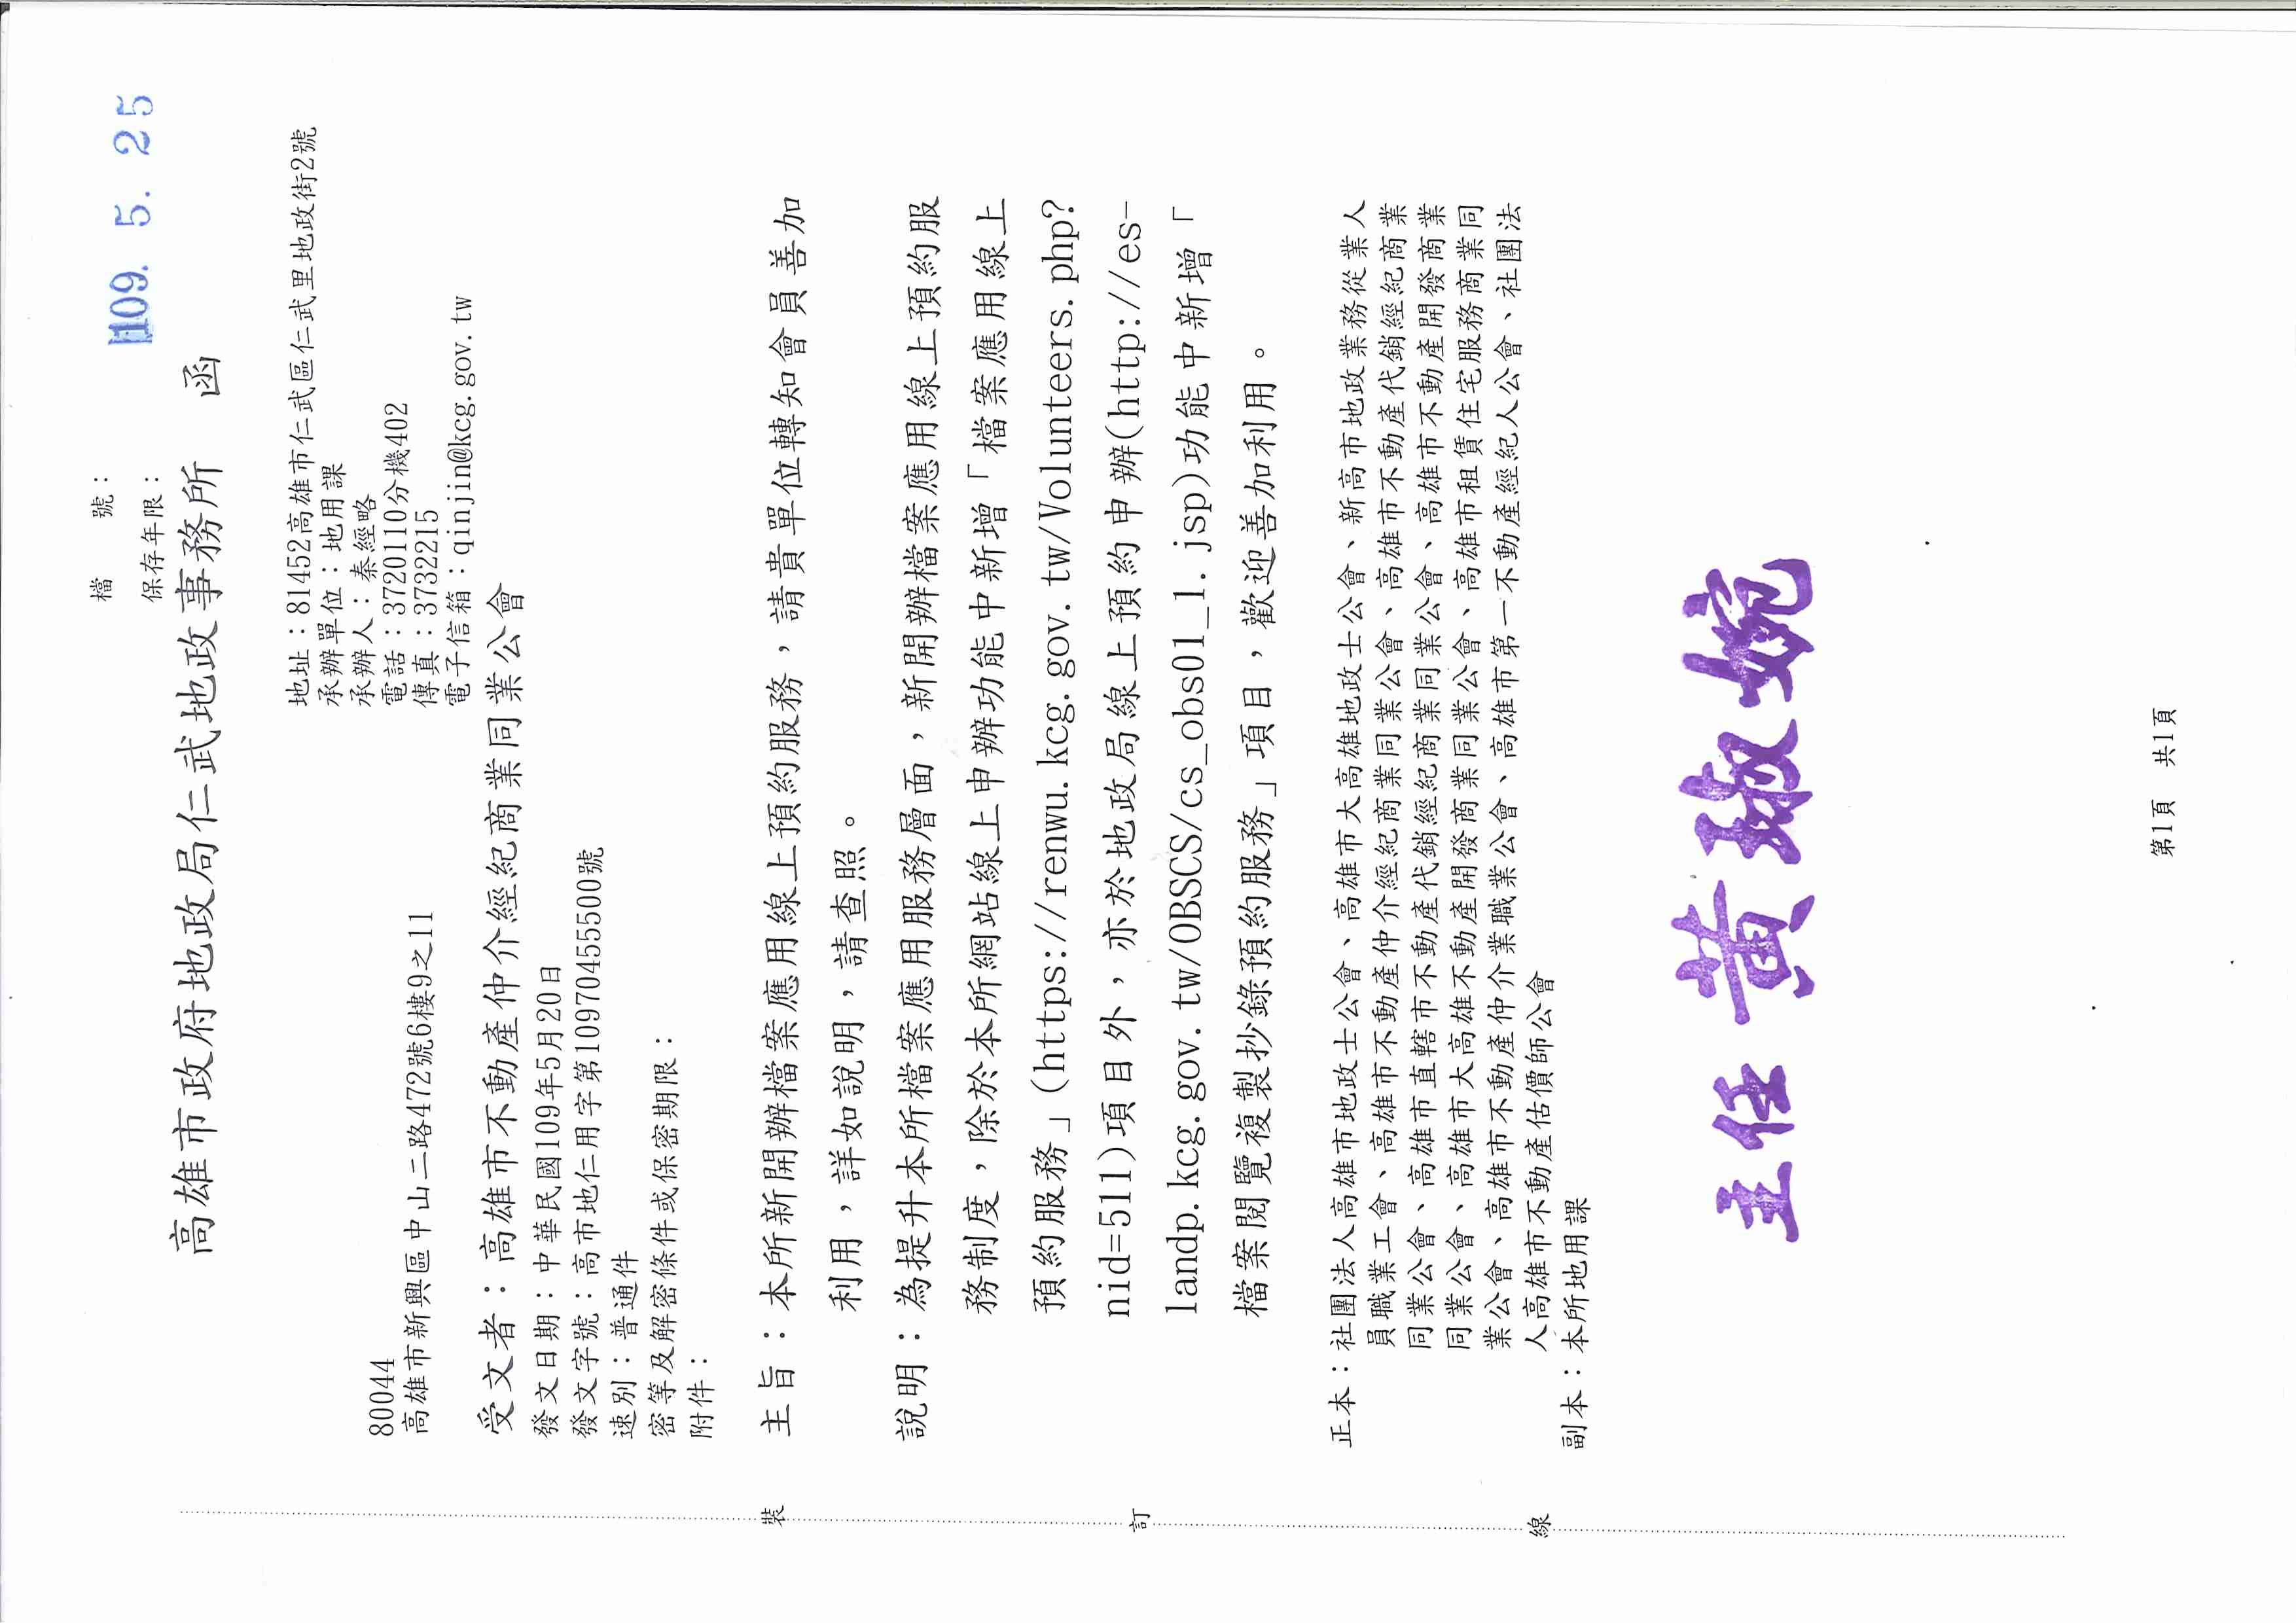 檔　　號：
保存年限：
109. 5. 25
高雄市政府地政局仁武地政事務所　函
地址：81452高雄市仁武區仁武里地政街2號
承辦單位：地用課
承辦人：秦經略
電話：3720110分機402
傳真：3732215
電子信箱：qinjin@kcg.gov.tw
80044
高雄市新興區中山二路472號6樓9之11
受文者：高雄市不動產仲介經紀商業同業公會
發文日期：中華民國109年5月20日
發文字號：高市地仁用字第10970455500號
速別：普通件
密等及解密條件或保密期限：
附件：
主旨：本所新開辦檔案應用線上預約服務，請貴單位轉知會員善加
利用，詳如說明，請查照。
說明：為提升本所檔案應用服務層面，新開辦檔案應用線上預約服
務制度，除於本所網站線上申辦功能中新增「檔案應用線上
預約服務」(https://renwu.kcg.gov.tw/Volunteers.php?
nid=511)項目外，亦於地政局線上預約申辦(http://es-
landp.kcg.gov.tw/OBSCS/cs_obs01_1.jsp)功能中新增「
檔案閱覽複製抄錄預約服務」項目，歡迎善加利用。
正本：社團法人高雄市地政士公會、高雄市大高雄地政士公會、新高市地政業務從業人
員職業工會、高雄市不動產仲介經紀商業同業公會、高雄市不動產代銷經紀商業
同業公會、高雄市直轄市不動產代銷經紀商業同業公會、高雄市不動產開發商業
同業公會、高雄市大高雄不動產開發商業同業公會、高雄市租賃住宅服務商業同
業公會、高雄市不動產仲介業職業公會、高雄市第一不動產經紀人公會、社團法
人高雄市不動產估價師公會
副本：本所地用課
主任 黃琡婉
裝
訂
線
第1頁　共1頁